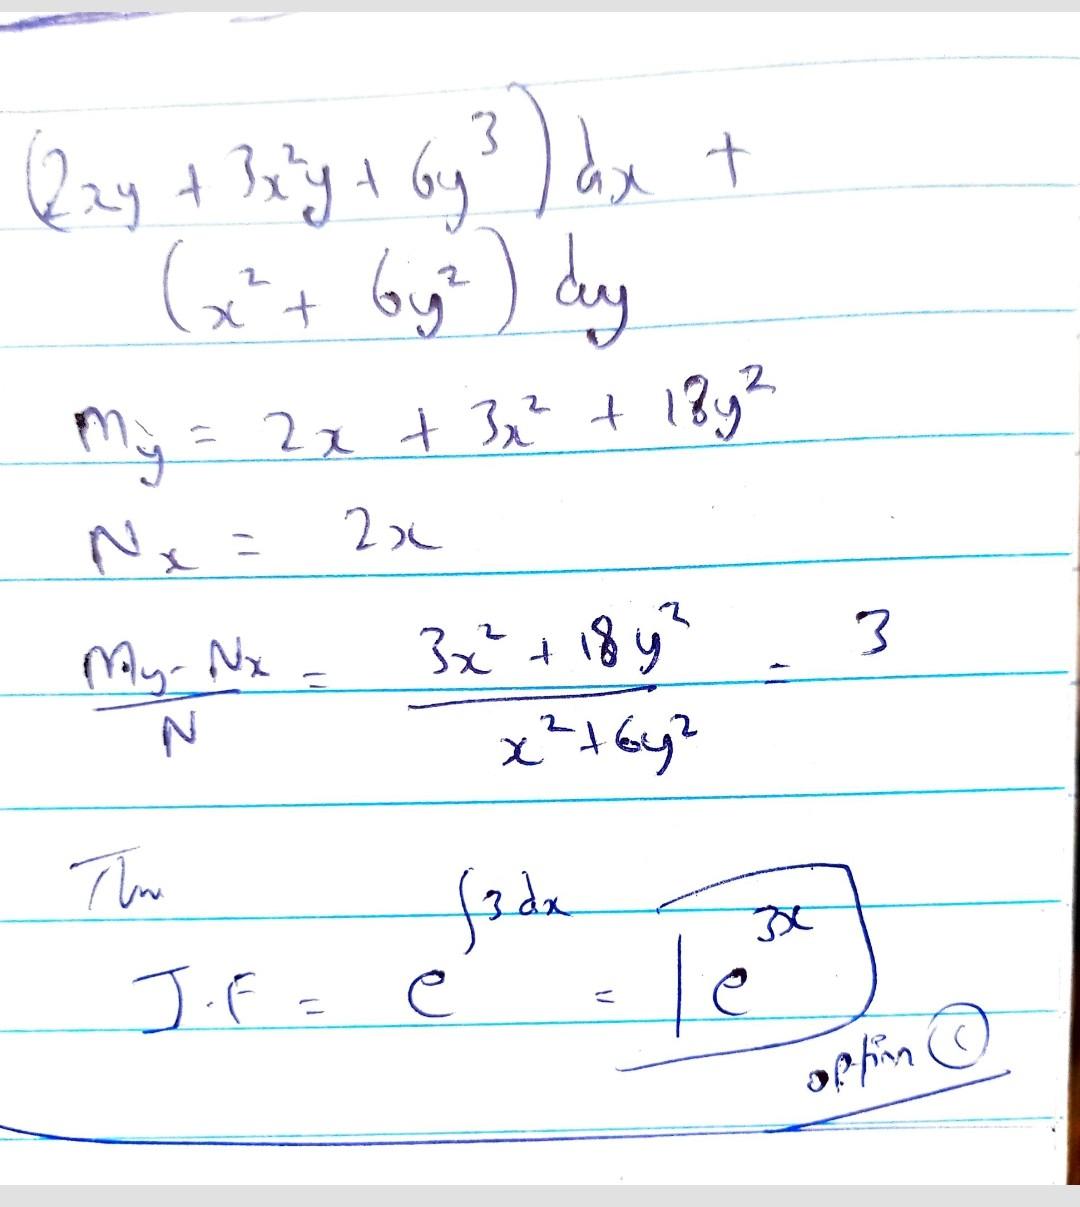 (2xy + 3x²y + 6y³) dx +
(x² + 6y²) dy
My = 2x + 3x² + 18y²
Nx = 2x
(My - Nx)/N = (3x² + 18y²)/(x² + 6y²) = 3
I.F = e^∫3dx = e^3x
option (c)